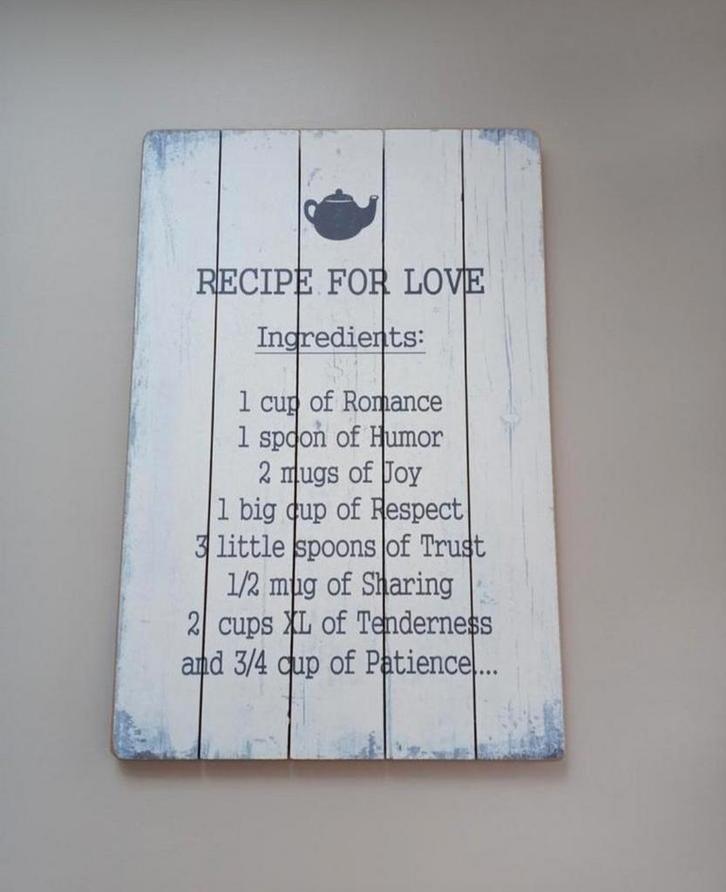 RECIPE FOR LOVE
Ingredients:
1 cup of Romance
1 spoon of Humor
2 mugs of Joy
1 big cup of Respect
3 little spoons of Trust
1/2 mug of Sharing
2 cups XL of Tenderness
and 3/4 cup of Patience....